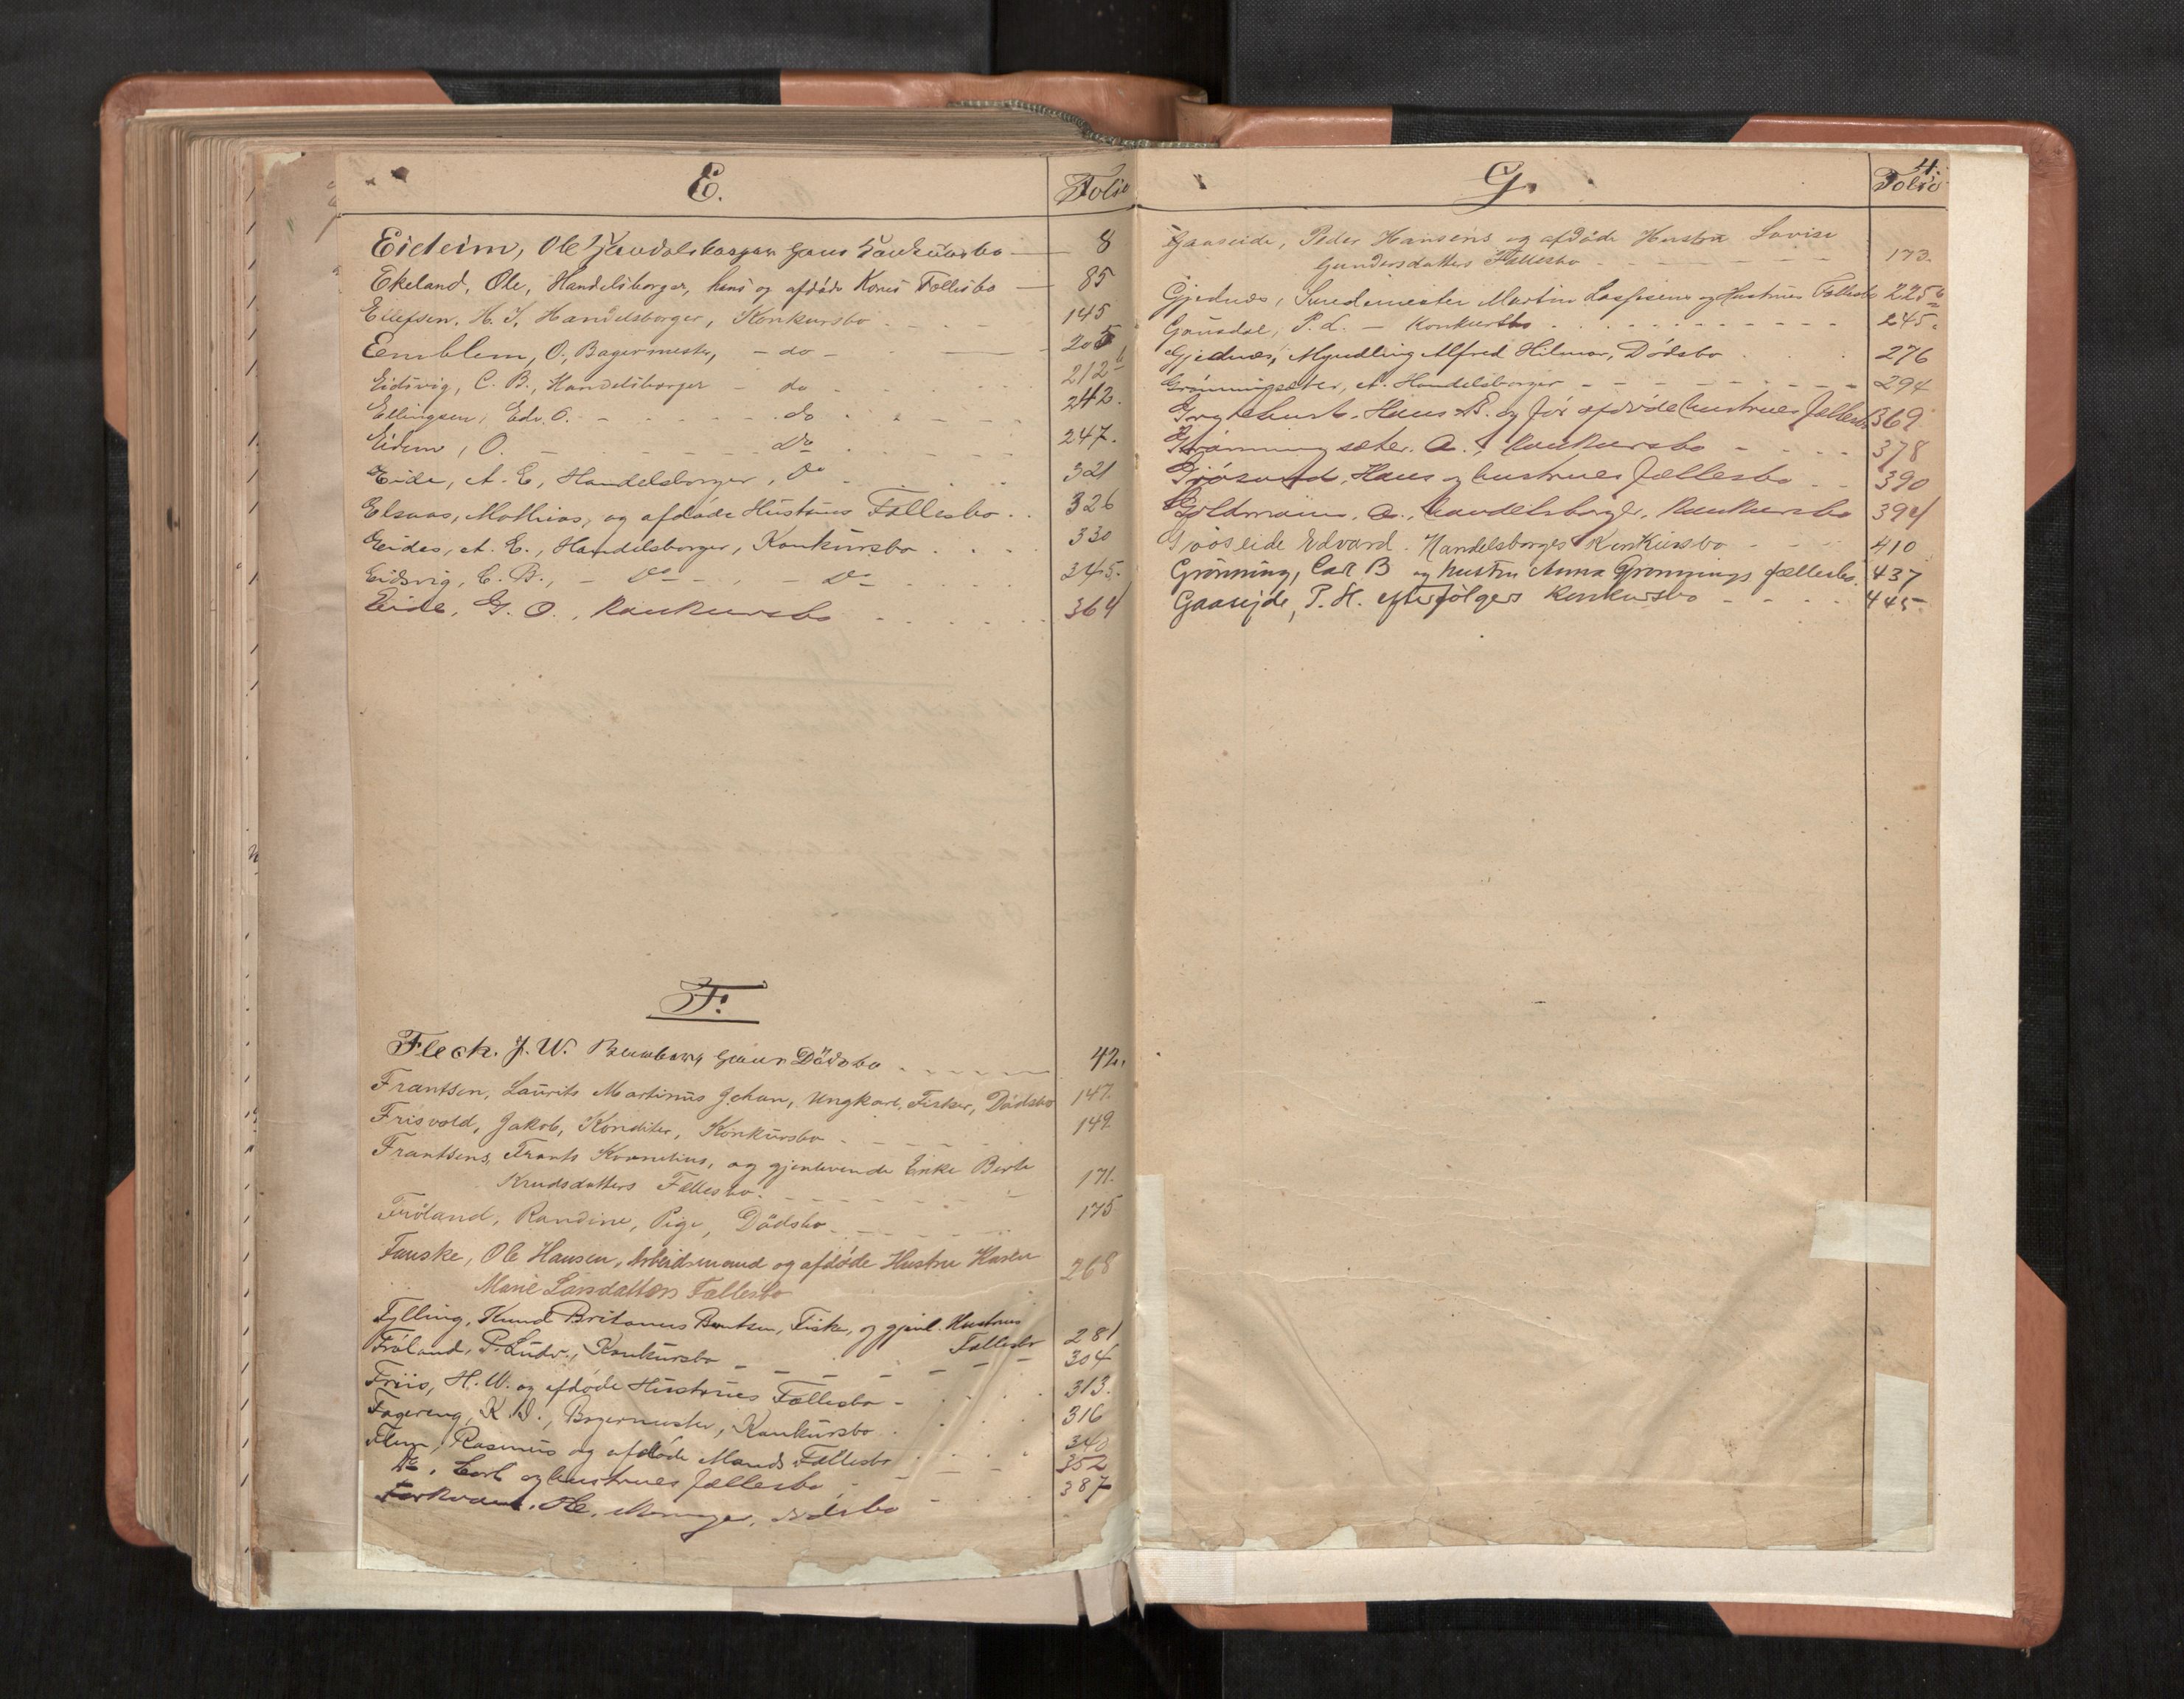 E.
Folio
Eideim, Ole Handelsborger hans Konkursbo 8
Ekeland, Ole, Handelsborger, hans og afdöde Kones Fællesbo 85
Ellefsen, H. J. Handelsborger, Konkursbo 145
Emblem, O., Bagermester, - do - 205
Eidsvig, C. B., Handelsborger - do 212b
Ellingsen, Edv. O. - do 242.
Eidem, O. - do 247.
Eide, A. E., Handelsborger, Do 321
Elsaas, Mathias, og afdöde Hustrues Fællesbo 326
Eides, A. E., Handelsborger, Konkursbo 330
Eidsvig, C. B., - Do - , - Do 345.
Eide, G. O., Konkursbo 364
F.
Fleck. J. W. hans Dödsbo 42.
Frantsen, Laurits Martinus Johan, Ungkarl, Fisker, Dödsbo 147.
Frisvold, Jakob, Konditor, Konkursbo 149.
Frantsens, Frants Kornelius, og gjenlevende Enke Berte
Knudsdatters Fællesbo. 171.
Fröland, Randine, Pige, Dödsbo 175
Fauske, Ole Hansen, Arbeidsmand og afdöde Hustru Karen
Marie Larsdatters Fællesbo 268
Fylling, Knud Britanus Bentsen, Fisker, og gjenl. Hustrues
Fællesbo 281
Fröland, P. Ludv., Konkursbo 304
Friis, H. W. og afdöde Hustrues Fællesbo 313.
Fagereng, K. , Bagermester, Konkursbo 316
Flem, Rasmus og afdöde Mands Fællesbo 340
Do, Carl og hustrues fællesbo 352
387
G.
4.
Folio
Gaaseide, Peder Hansens og afdöde Hustru Lovise
Gundersdatters Fællesbo 173.
Gjednes, Smedemester Martin Lassesens og Hustrues Fællesbo 225b
Gausdal, P. L. - Konkursbo 245.
Gjednes, Myndling Alfred Hilmar, Dödsbo 276
Grönningsæter, A. Handelsborger 294
Hans B. og før afdöde hustrues fællesbo 369.
Grønningsæter. A., Konkursbo 378
Gjøsund, Hans og hustrues fællesbo 390
Goldmann, A., handelsborger, Konkursbo 394
Edvard. Handelsborges Konkursbo 410
Grönning, Carl B og hustru Anna Grönnings fællesbo. 437
Gaasejde, P. H. efterfölgers Konkursbo 445